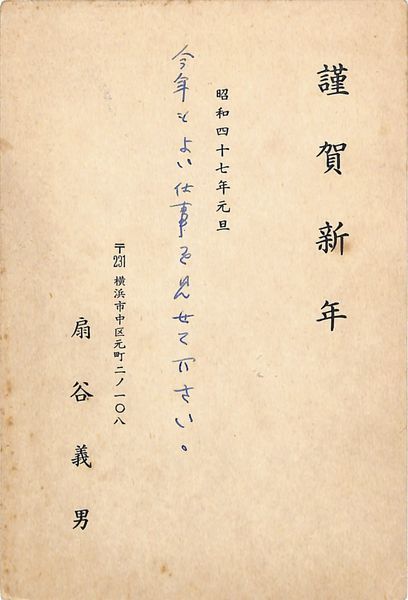 謹賀新年
昭和四十七年元旦
今年もよい仕事を見せて下さい。
〒231 横浜市中区元町二ノ一〇八
扇谷義男